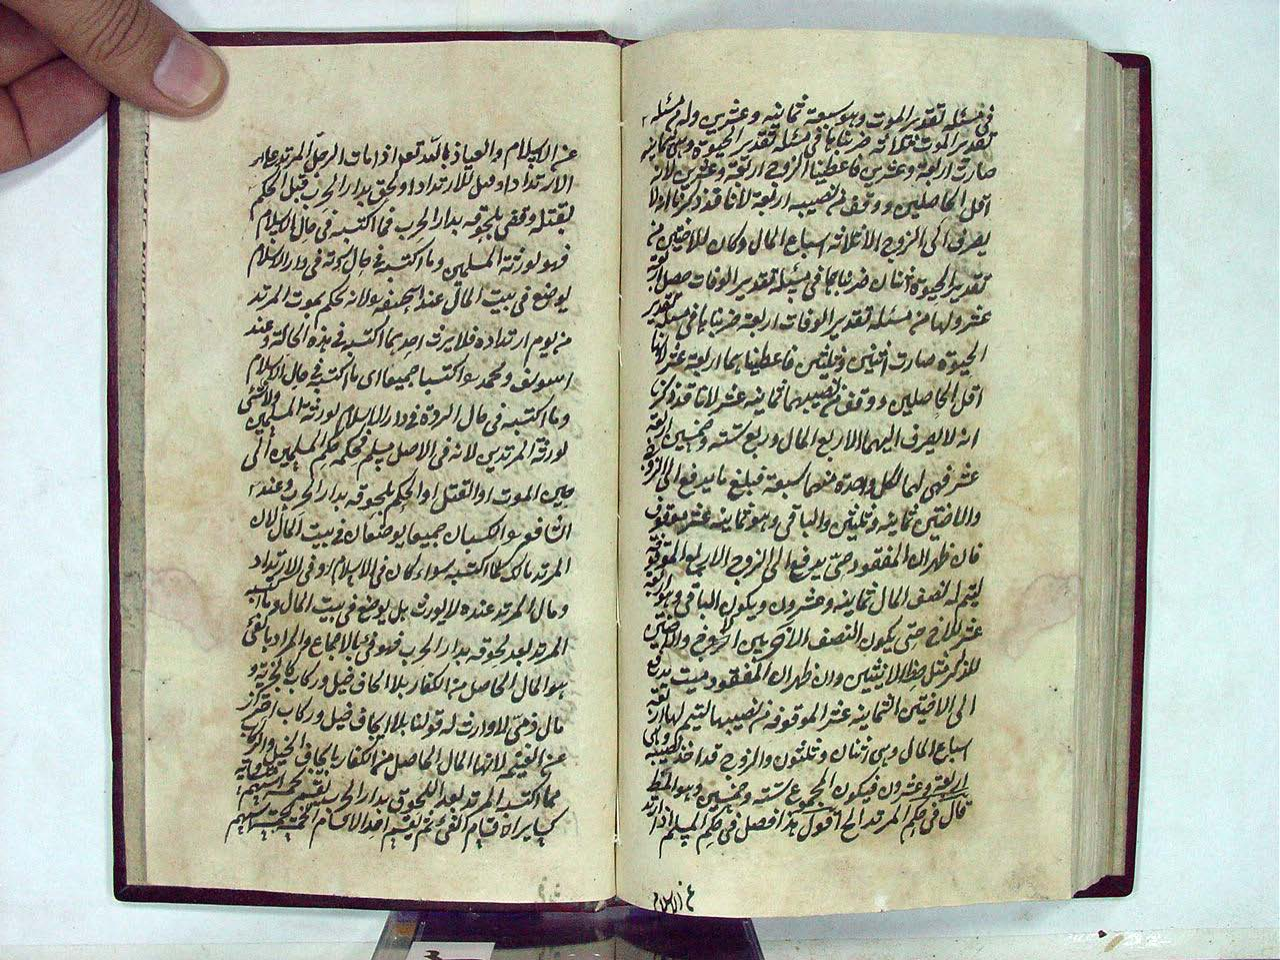 في مسئلة تقدير الموت وهو سبعة ثمانية وعشرين وله من مسئلة
تقدير الموت ثلاثة ضربناها في مسئلة تقدير الحيوة وهي ثمانية
صارت اربعة وعشرين فاعطينا الزوج اربعة وعشرين لانه
اقل الحاصلين ووقف من نصيبه اربعة لانا قد ذكرنا ان لا
يصرف الى الزوج الا ثلاثة اسباع المال وكان للاختين من
تقدير الحيوة اثنان ضربناهما في مسئلة تقدير الوفات حصل اربعة
عشر ولهما من مسئلة تقدير الوفات اربعة ضربناها في مسئلة تقدير
الحيوة صارت اثنين وثلثين فاعطيناهما اربعة عشر لانها
اقل الحاصلين ووقف من نصيبهما ثمانية عشر لانا قد ذكرنا
انه لا يصرف اليهما الا ربع المال وربع ستة وخمسين اربعة
عشر فهي لهما لكل واحدة منهما سبعة فبلغ ما يدفع الى الزوج
والاختين ثمانية وثلثين والباقي وهو ثمانية عشر موقوف
فان ظهر ان المفقود حتى يدفع الى الزوج الاربع الموقوفة
ليتم له نصف المال ثمانية وعشرون ويكون الباقي وهو اربعة
عشر للاخ حتى يكون النصف الآخر بين الاخ والاختين
للذكر مثل حظ الانثيين وان ظهر ان المفقود ميت يدفع
الى الاختين الثمانية عشر الموقوفة من نصيبهما ليتم لهما اربعة
اسباع المال وهي اثنان وثلثون والزوج قد اخذ نصيبه وهي
اربعة وعشرون فيكون المجموع ستة وخمسين وهو المط
قال في حكم المرتد الخ اقول هذا فصل في حكم المسلم اذا ارتد
عن الاسلام
عن الاسلام والعياذ بالله تعا اذا مات الرجل المرتد على
الارتداد او قتل للارتداد او لحق بدار الحرب قبل الحكم
بقتله وقضى بلحوقه بدار الحرب فما اكتسبه في حال الاسلام
فهو لورثته المسلمين وما اكتسبه في حال ردته في دار الاسلام
يوضع في بيت المال عند ابيحنيفه لانه يحكم بموت المرتد
من يوم ارتداده فلا يرث احد بما اكتسبه في هذه الحالة وعند
ابي يوسف ومحمد سواء اكتسبا جميعا اى ما اكتسبه في حال الاسلام
وما اكتسبه في حال الردة في دار الاسلام لورثته المسلمين ولا شئ
لورثة المرتدين لانه في الاصل مسلم فحكمه حكم المسلمين الى
حين الموت او القتل او الحكم بلحوقه بدار الحرب وعند
الشافعي الكسبان جميعا يوضعان في بيت المال لان
المرتد مالك لما اكتسبه سواء كان في الاسلام او في الارتداد
ومال المرتد عنده لا يورث بل يوضع في بيت المال وما اكتسبه
المرتد بعد لحوقه بدار الحرب فهو فئ بالاجماع والمراد بالفئ
هو المال الحاصل من الكفار بلا ايجاف خيل وركاب كالجزية و
مال ذمي لا وارث له قولنا بلا ايجاف خيل وركاب احتراز
عن الغنيمة لانها المال الحاصل من الكفار بايجاف الخيل والركاب
مما اكتسبه المرتد بعد اللحوق بدار الحرب يقسم
كسائر اقسام الفئ ثم يقسم احد الاقسام الخمسة